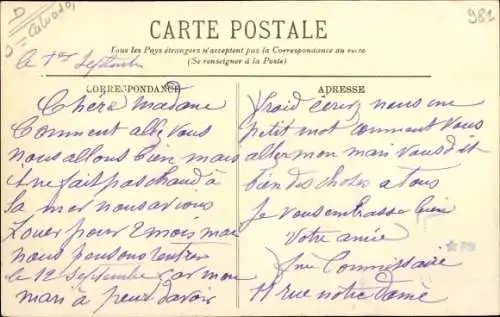 D = Calvados
981
CARTE POSTALE
Tous les Pays étrangers n'acceptent pas la Correspondance au recto
(Se renseigner à la Poste)
le 1er Septembre
CORRESPONDANCE
Chére Madame
Comment allez vous
nous allons bien mais
il ne fait pas chaud à
la mer nous avions
Louer pour 2 mois mais
nous pensons rentrer
le 12 Septembre car mon
mari à peur d'avoir
ADRESSE
froid écrivez nous un
petit mot comment vous
aller mon mari vous dit
bien des choses a tous
Je vous embrasse bien
Votre amie
Commissaire
11 rue notre Dame
PB